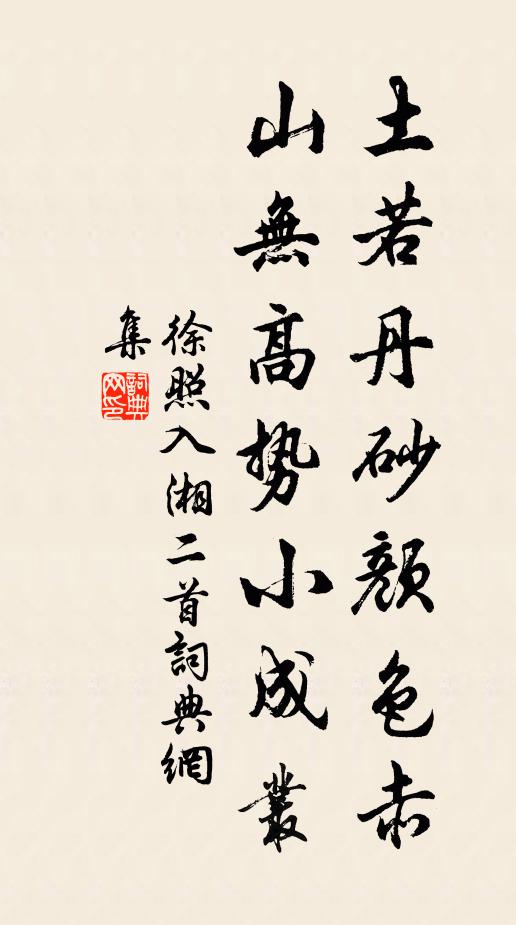 土若丹砂顏色赤
山無高勢小成叢
徐照入湘二首詞典網
集
詞典
网印